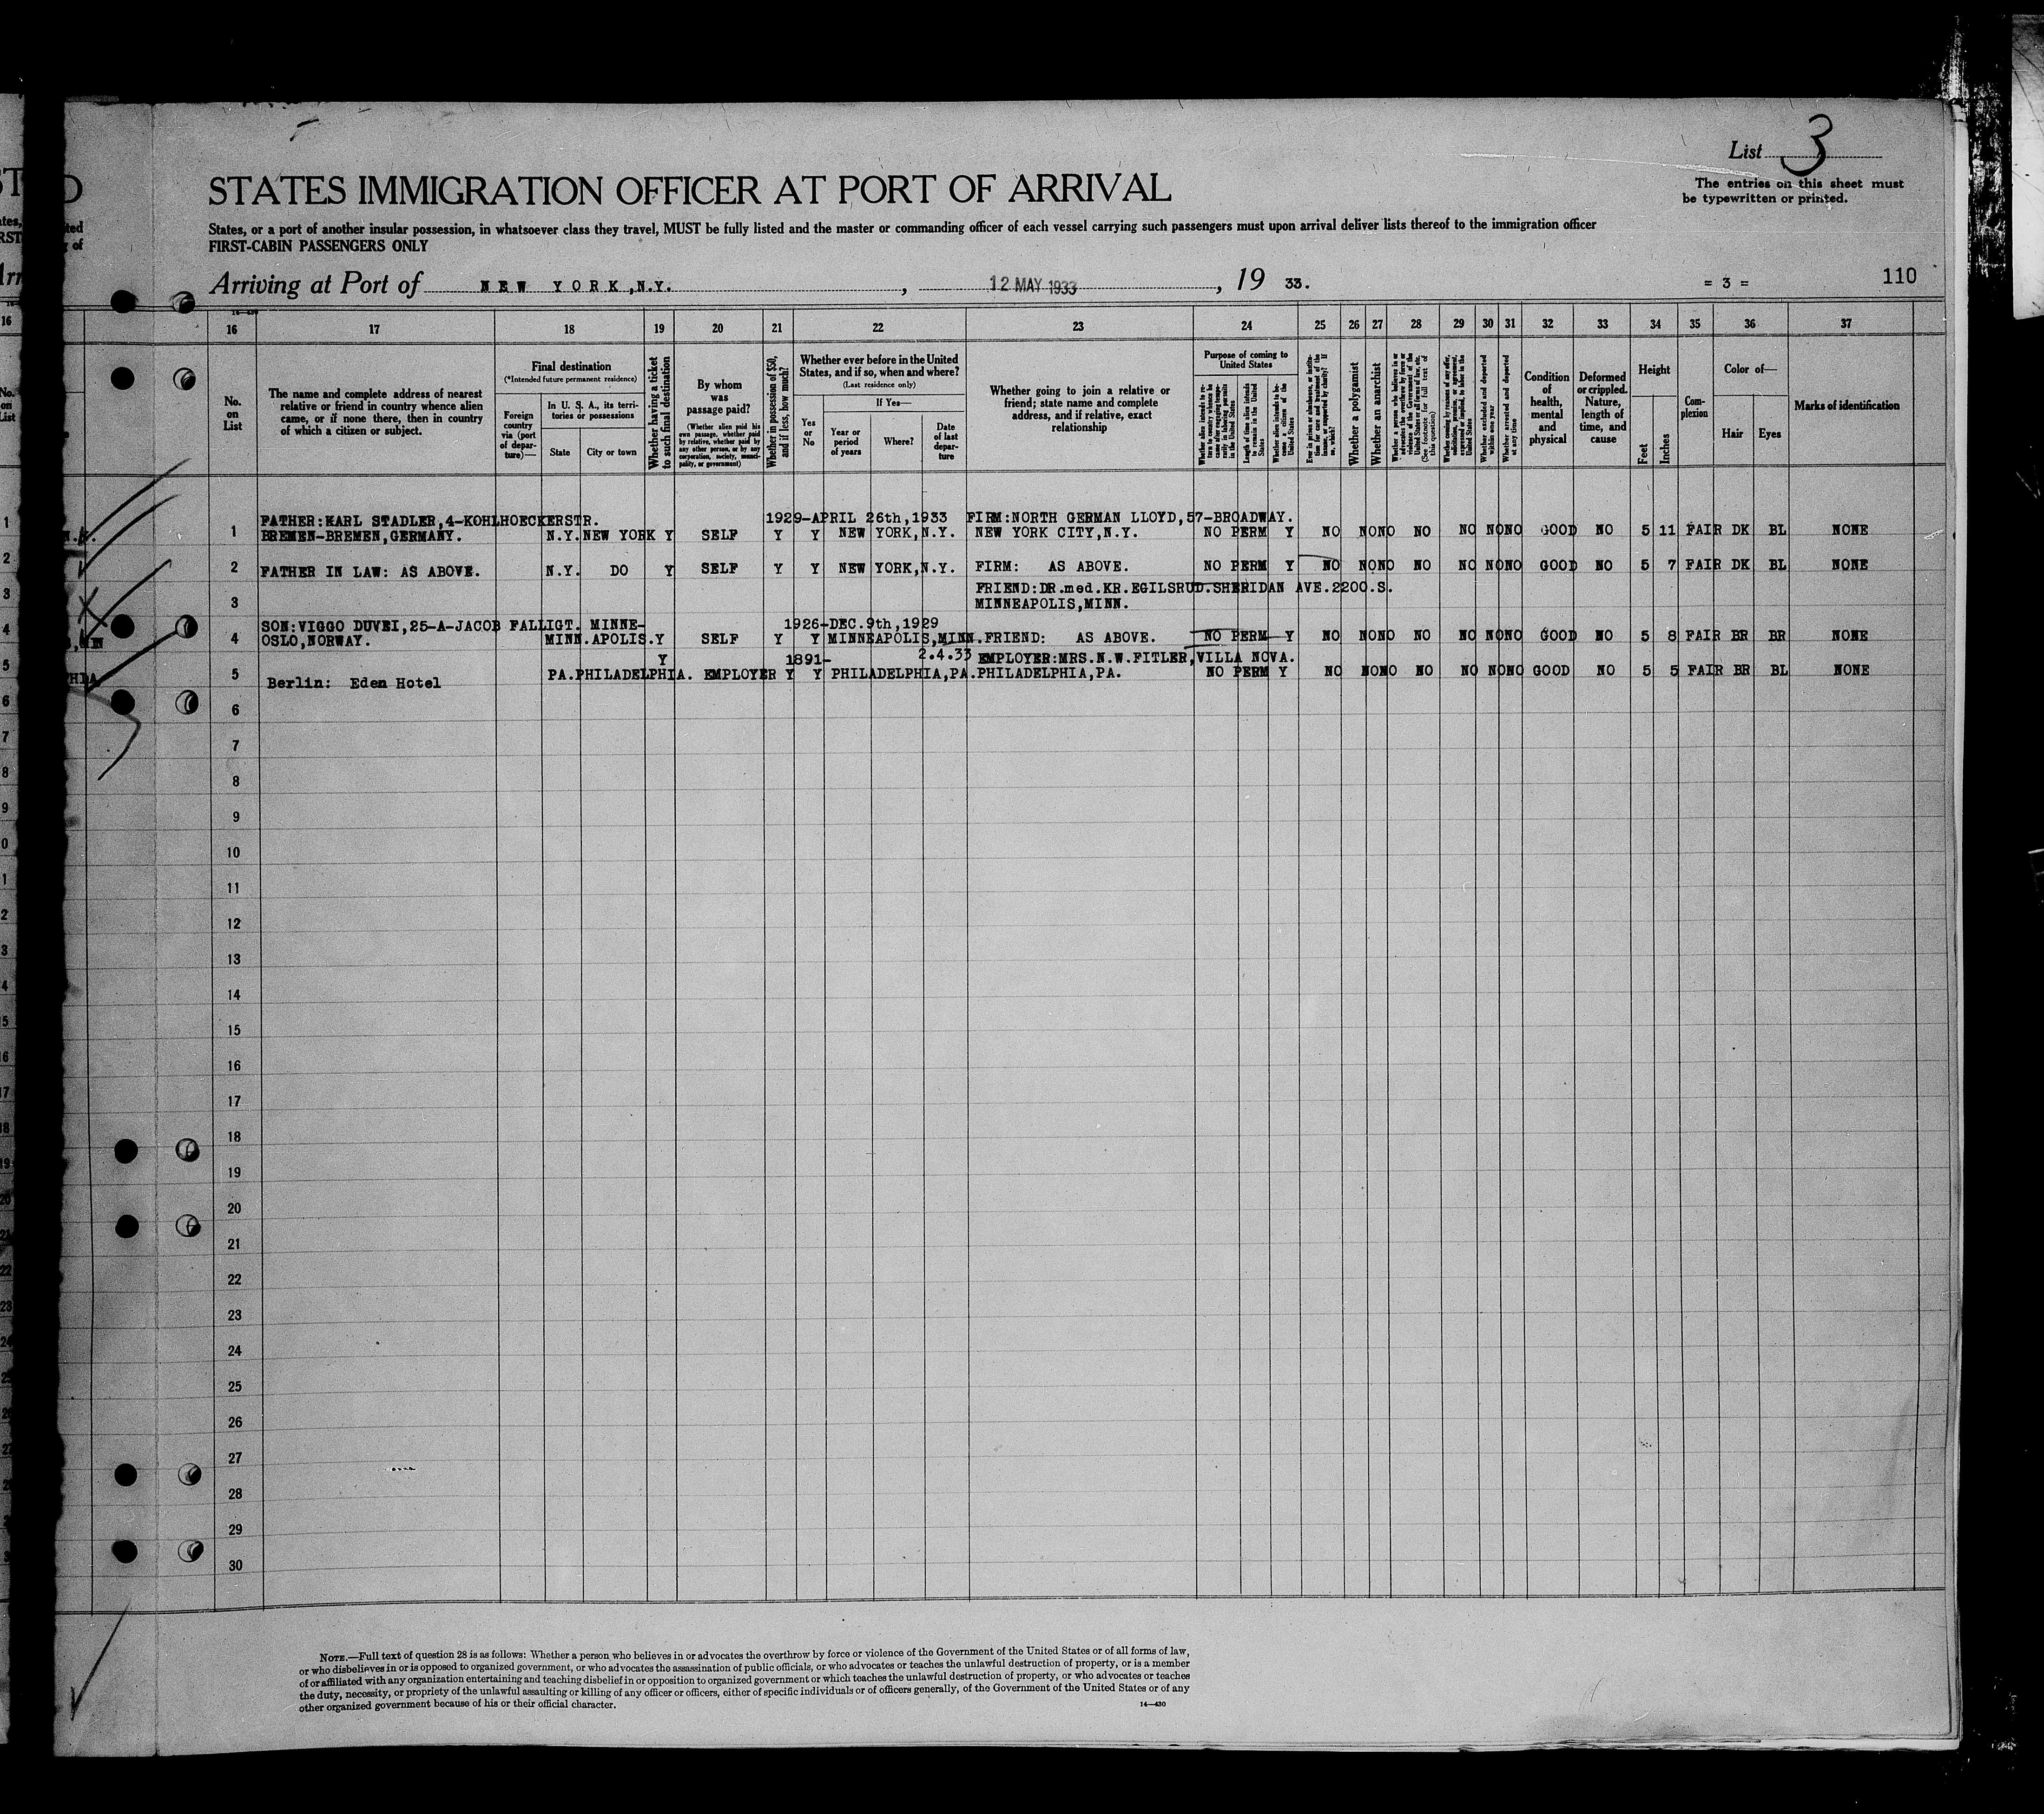 List 3
The entries on this sheet must
be typewritten or printed.
STATES IMMIGRATION OFFICER AT PORT OF ARRIVAL
States, or a port of another insular possession, in whatsoever class they travel, MUST be fully listed and the master or commanding officer of each vessel carrying such passengers must upon arrival deliver lists thereof to the immigration officer
FIRST-CABIN PASSENGERS ONLY
Arriving at Port of NEW YORK, N.Y., 12 MAY 1933, 19 33. = 3 = 110
16 17 18 19 20 21 22 23 24 25 26 27 28 29 30 31 32 33 34 35 36 37
No. on List
The name and complete address of nearest
relative or friend in country whence alien
came, or if none there, then in country
of which a citizen or subject.
Final destination
(*Intended future permanent residence)
Foreign country via (port of departure)—
In U. S. A., its territories or possessions
State
City or town
Whether having a ticket to such final destination
By whom was passage paid?
(Whether alien paid his own passage, whether paid by relative, whether paid by any other person, or by any corporation, society, municipality, or government)
Whether in possession of $50, and if less, how much?
Whether ever before in the United
States, and if so, when and where?
(Last residence only)
Yes or No
If Yes—
Year or period of years
Where?
Date of last departure
Whether going to join a relative or
friend; state name and complete
address, and if relative, exact
relationship
Purpose of coming to United States
Whether alien intends to return to country whence he came after engaging temporarily in laboring pursuits in the United States
Length of time alien intends to remain in the United States
Whether alien intends to become a citizen of the United States
Ever in prison or almshouse, or institution for care and treatment of the insane, or supported by charity? If so, which?
Whether a polygamist
Whether an anarchist
Whether a person who believes in or advocates the overthrow by force or violence of the Government of the United States or all forms of law, etc. (See footnote for full text of this question)
Whether coming by reason of any offer, solicitation, promise, or agreement, expressed or implied, to labor in the United States
Whether excluded and deported within one year
Whether arrested and deported at any time
Condition of health, mental and physical
Deformed or crippled. Nature, length of time, and cause
Height
Feet
Inches
Complexion
Color of—
Hair
Eyes
Marks of identification
FATHER:KARL STADLER,4-KOHLHOECKERSTR. 1929-APRIL 26th,1933 FIRM:NORTH GERMAN LLOYD,57-BROADWAY.
1 BREMEN-BREMEN,GERMANY. N.Y. NEW YORK Y SELF Y Y NEW YORK,N.Y. NEW YORK CITY,N.Y. NO PERM Y NO NO NO NO NO NO NO GOOD NO 5 11 FAIR DK BL NONE
2 FATHER IN LAW: AS ABOVE. N.Y. DO Y SELF Y Y NEW YORK,N.Y. FIRM: AS ABOVE. NO PERM Y NO NO NO NO NO NO NO GOOD NO 5 7 FAIR DK BL NONE
FRIEND:DR.med.KR.EGILSRUD.SHERIDAN AVE.2200.S.
3 MINNEAPOLIS,MINN.
SON:VIGGO DUVEI,25-A-JACOB FALLIGT. MINNE- 1926-DEC.9th,1929
4 OSLO,NORWAY. MINN.APOLIS.Y SELF Y Y MINNEAPOLIS,MINN. FRIEND: AS ABOVE. NO PERM Y NO NO NO NO NO NO NO GOOD NO 5 8 FAIR BR BR NONE
Y 1891- 2.4.33 EMPLOYER:MRS.N.W.FITLER,VILLA NOVA.
5 Berlin: Eden Hotel PA.PHILADELPHIA. EMPLOYER Y Y PHILADELPHIA,PA. PHILADELPHIA,PA. NO PERM Y NO NO NO NO NO NO NO GOOD NO 5 5 FAIR BR BL NONE
6
7
8
9
10
11
12
13
14
15
16
17
18
19
20
21
22
23
24
25
26
27
28
29
30
NOTE.—Full text of question 28 is as follows: Whether a person who believes in or advocates the overthrow by force or violence of the Government of the United States or of all forms of law,
or who disbelieves in or is opposed to organized government, or who advocates the assassination of public officials, or who advocates or teaches the unlawful destruction of property, or is a member
of or affiliated with any organization entertaining and teaching disbelief in or opposition to organized government or which teaches the unlawful destruction of property, or who advocates or teaches
the duty, necessity, or propriety of the unlawful assaulting or killing of any officer or officers, either of specific individuals or of officers generally, of the Government of the United States or of any
other organized government because of his or their official character. 14—430